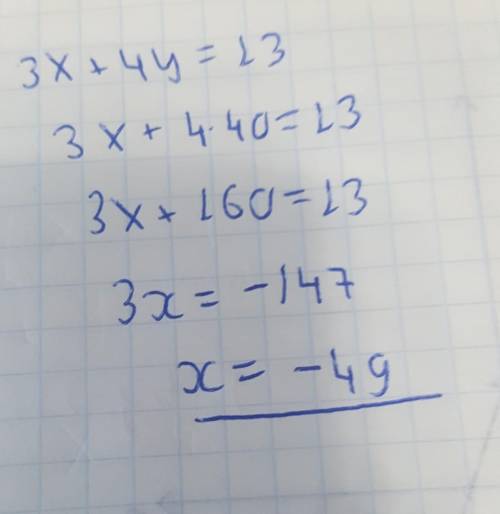 3x + 4y = 13
3x + 4·40 = 13
3x + 160 = 13
3x = -147
x = -49